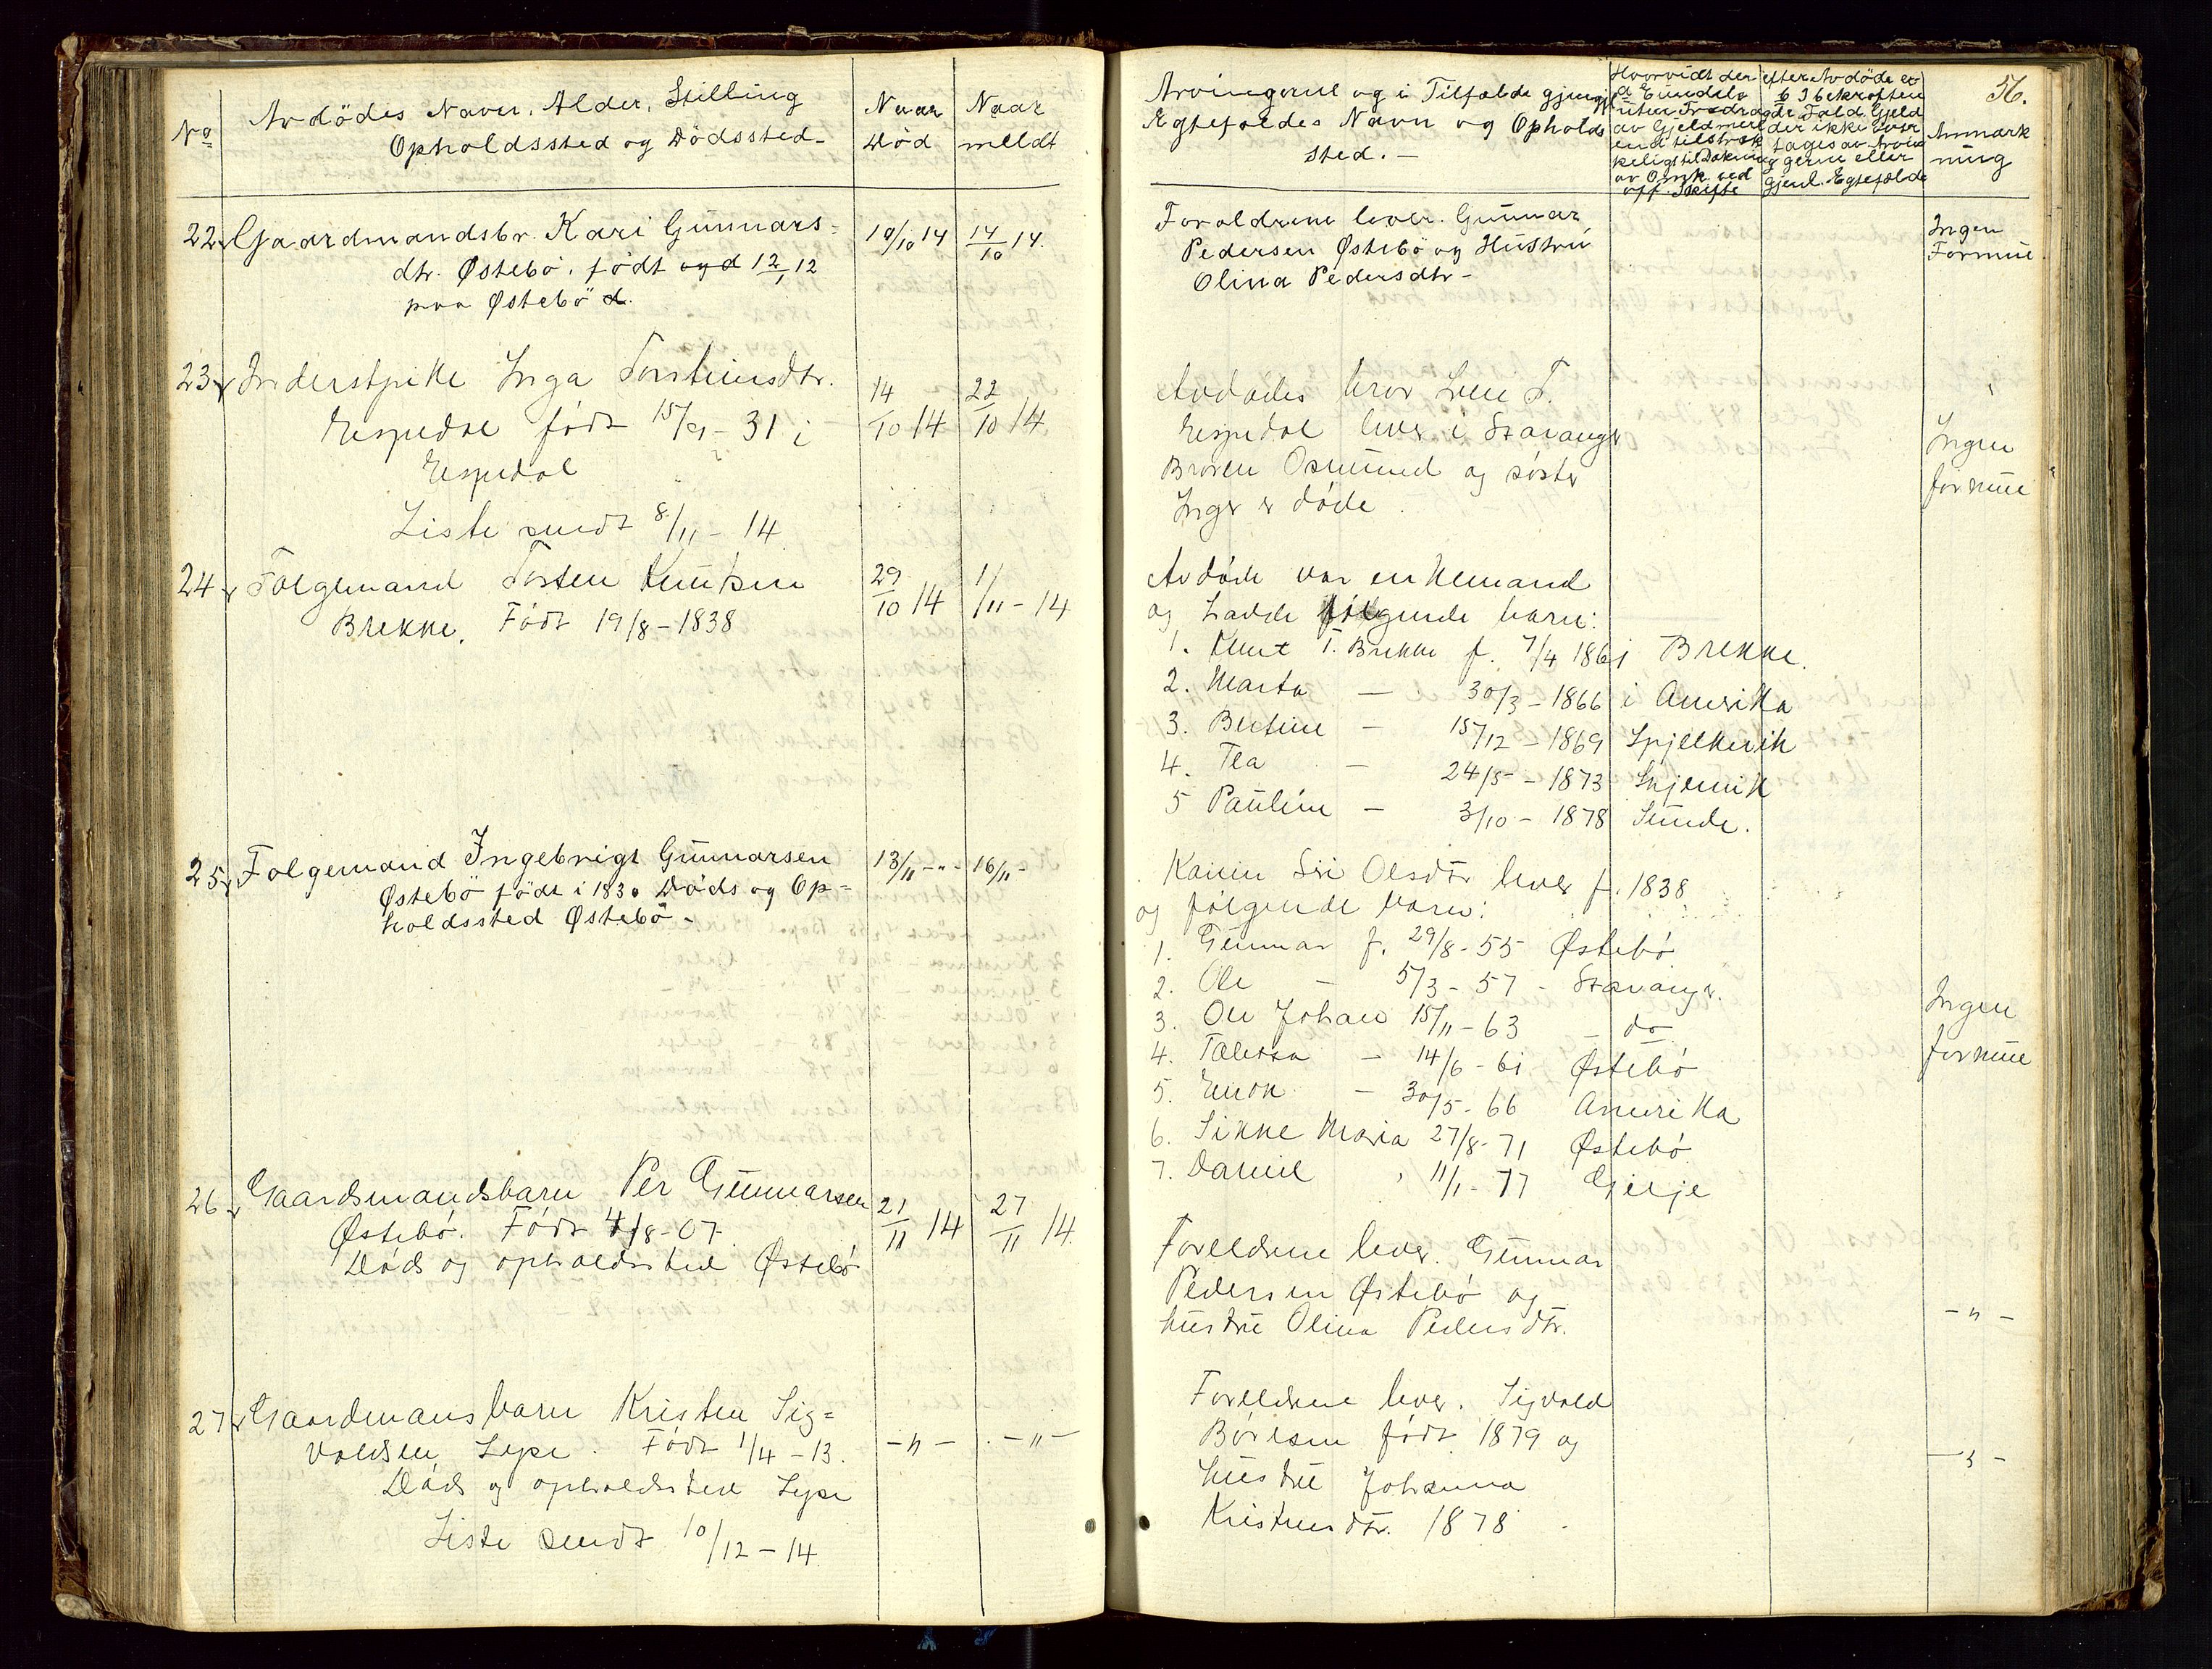 No
Avdödes Navn, Alder, Stilling
Opholdssted og Dödssted-
Naar
Död
Naar
meldt
22
Gaardmandsbr. Kari Gunnars-
dtr. Østebö, född ogd 12/1 12
paa Østebö d.
10/10 14
14/10 14.
23
Inderstpike Inga Torsteinsdtr.
Espedal född 15/9 - 31 i
Espedal
14/10 14
22/10 14
Liste sendt 8/11 - 14
24
Folgemand Torsten Knutsen
Brekke. Född 19/8 - 1838
29/10 14
1/11 - 14
25
Folgemand Ingebrigt Gunnarsen
Østebö född i 1830 Döds og Op-
holdssted Østebö-
13/11 -"-
16/11 -
26
Gaardsmandsbarn Per Gunnarsen
Østebö. Född 4/8 - 07
Döds og opholdssted Østebö
21/11 14
27/11 14.
27
Gaardmansbarn Kristen Sig-
valdsen Lyse. Född 1/4 - 13.
Döds og opholdssted Lyse
- " -
- " -
Liste sendt 10/12 - 14
56.
Arvingerne og i Tilfælde gjenl
Egtefoldes Navn og Opholds
sted. -
Hvorvidt der efter Avdöde er
av Gjeld mere der ikke over
tages av Arvin
gerne eller
av Omk. ved gjenl. Egtefælde
off. Skifte
Anmærk
ning
Foraldrene lever. Gunnar
Pedersen Østebö og Hustru
Olina Pedersdtr-
Ingen
Formue
Avdödes bror T.
Espedal lever i Stavanger
Broren Osmund og söster
Inger er döde.
Ingen
formue
Avdöde var enkemand
og havde fölgende barn:
1. Knut T. Brekke f. 7/4 1861 Brekke.
2. Marta - 30/3 - 1866 i Amerika
3. Bertine - 15/12 - 1869
4. Tea - 24/5 - 1873
5 Pauline - 3/10 - 1878 Sunde.
Konen Siri Olsdtr lever f. 1838
og fölgende barn:
1. Gunnar f. 29/8 - 55 Østebö
2. Ole - 5/3 - 57 - Stavanger.
3. Ole Johan 15/11 - 63 - do
4. - 14/6 - 61 Østebö
5. Enok - 30/5 - 66 Amerika
6. Sikke Maria 27/8 - 71 Østebö
7. Daniel 11/1 - 77 Gilje
Ingen
formue
Foreldrene lever. Gunnar
Pedersen Østebö og
hustru Olina Pedersdtr.
- " -
Foreldrene lever. Sigvald
Böresen född 1879 og
hustru Johanna
Kristensdtr. 1878
- " -